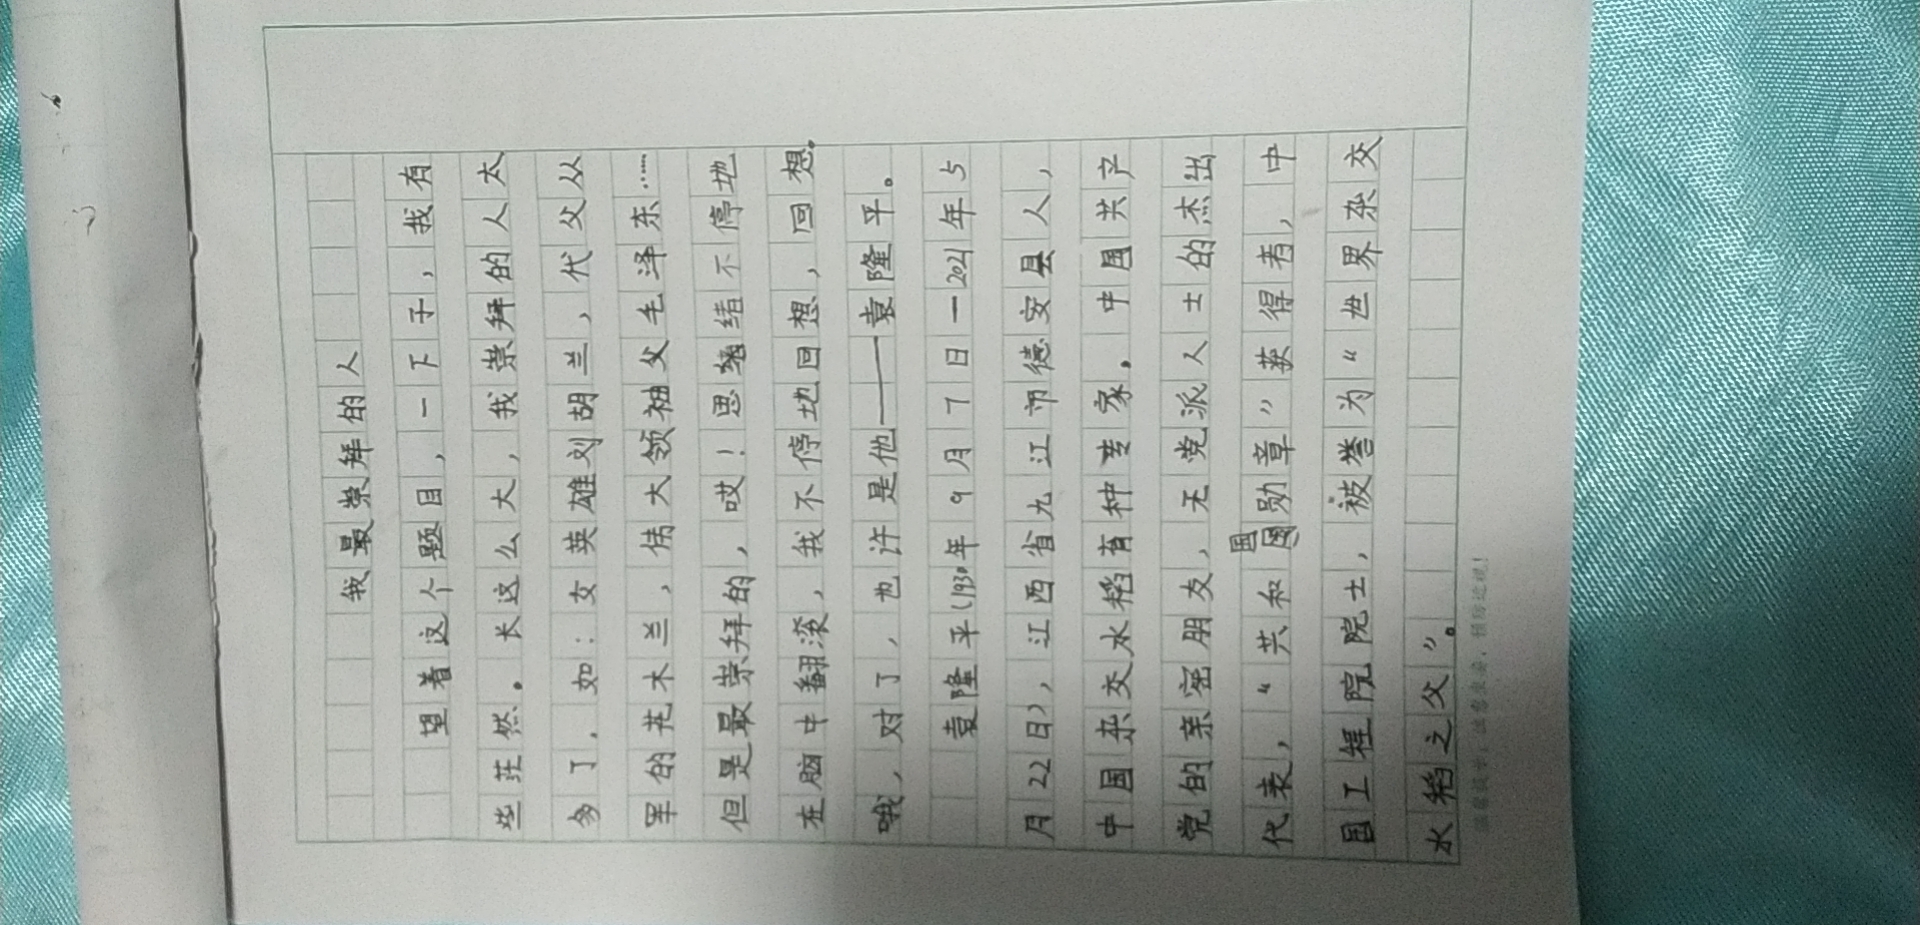 我最崇拜的人
望着这个题目，一下子，我有
些茫然。长这么大，我崇拜的人太
多了，如：女英雄刘胡兰，代父从
军的花木兰，伟大领袖父毛泽东……
但是最崇拜的，哎！思绪不停地
在脑中翻滚，我不停地回想，回想。
哦，对了，也许是他——袁隆平。
袁隆平(1930年9月7日—2021年5
月22日)，江西省九江市德安县人，
中国杂交水稻育种专家，中国共产
党的亲密朋友，无党派人士的杰出
代表，“共和国勋章”获得者，中
国工程院院士，被誉为“世界杂交
水稻之父”。